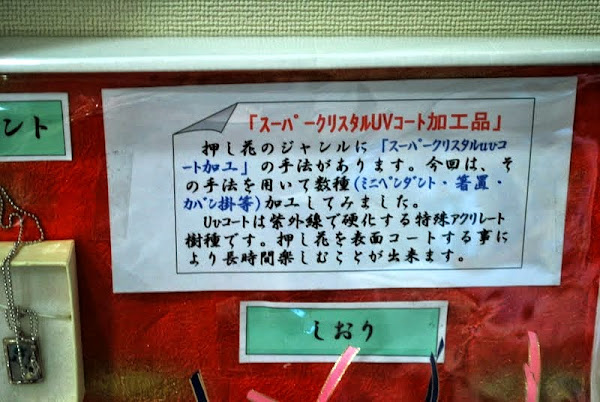 ント
「スーパークリスタルUVコート加工品」
押し花のジャンルに「スーパークリスタルuvコ
ート加工」の手法があります。今回は、そ
の手法を用いて数種(ミニペンダント・箸置・
カバン掛等)加工してみました。
Uvコートは紫外線で硬化する特殊アクリレート
樹種です。押し花を表面コートする事に
より長時間楽しむことが出来ます。
しおり